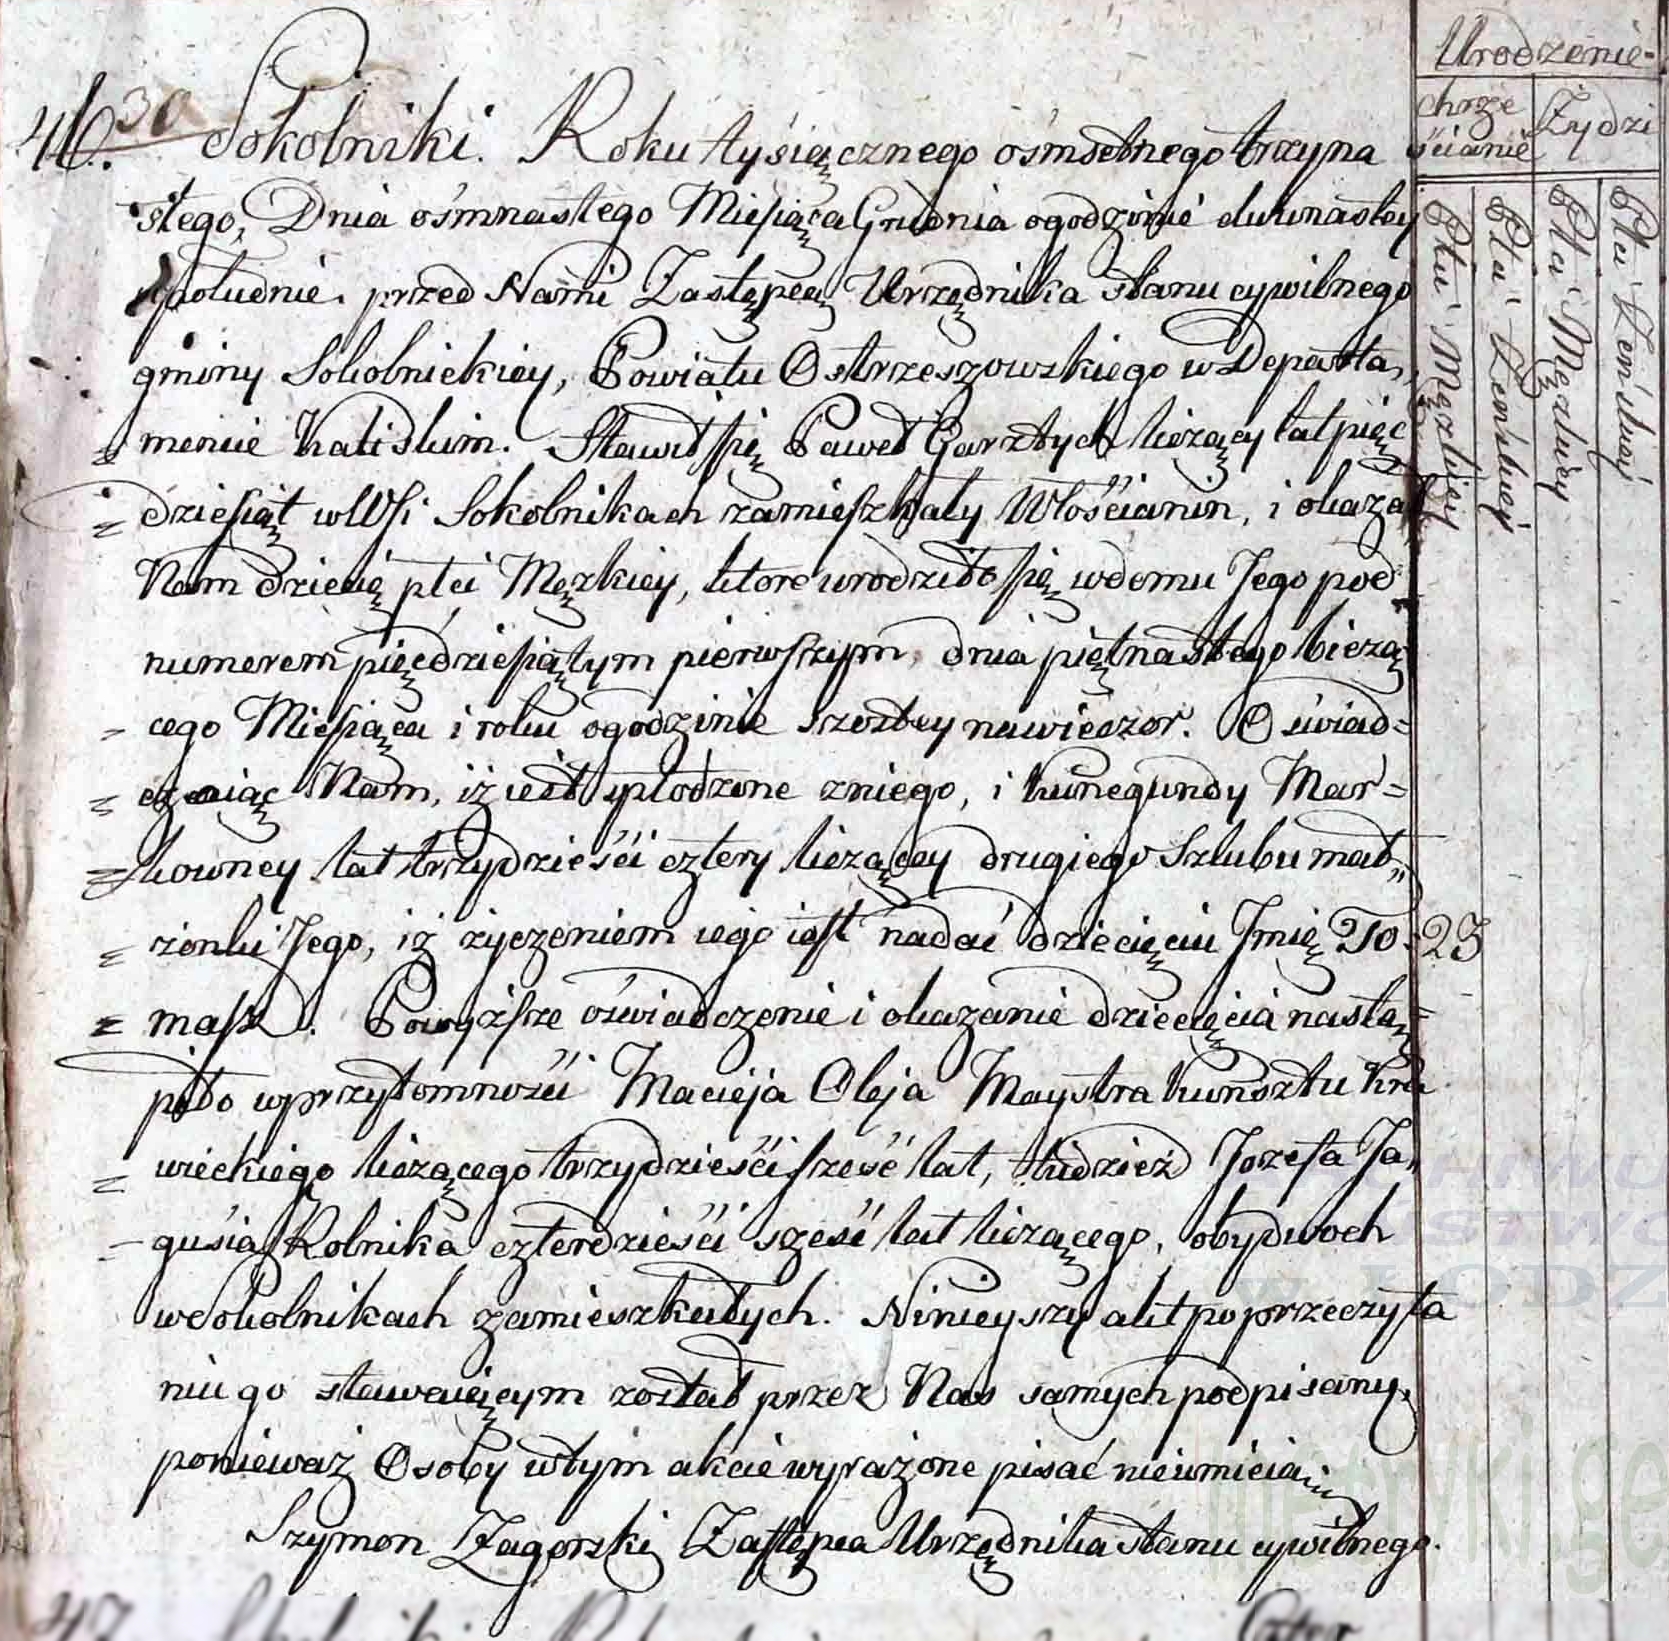 Urodzenie-
chrze
ścianie
Żydzi
Płci Męzkiey
Płci Żeńskiey
Płci Męzkiey
Płci Żeńskiey
46. 30 Sokolniki. Roku tysiącznego ośmsetnego trzyna
stego, Dnia ośmnastego Miesiąca Grudnia ogodzinie dwunastey
wpołudnie. przed Nami Zastępcą Urzędnika stanu cywilnego
gminy Sokolnickiey, Powiatu Ostrzeszowskiego w Departa,
= mencie Kaliskim. Stawił się Paweł Garztych liczący lat pięć
= dziesiąt wWsi Sokolnikach zamieszkały Włościanin, i okazał
Nam dziecię płci Męzkiey, ktore urodziło się wdomu Jego pod
numerem pięćdziesiątym pierwszym, dnia piętnastego bieżą
- cego Miesiąca i roku ogodzinie szostey nawieczor. Oświad=
= czaiąc Nam, iż iest spłodzone zniego, i Kunegundy Mar=
= kowney lat trzydzieści cztery liczącey drugiego Szlubu mał„
= żonki Jego, iż życzeniem iego iest nadać dziecięciu Jmię To= 23
= masz. Powyższe oświadczenie i okazanie dziecięcia nastą=
piło wprzytomności Macieja Oleja Maystra kunsztu Kra
= wieckiego liczącego trzydzieści sześć lat, tudzież Jozefa Ja„
- gusia Rolnika czterdzieści sześć lat liczącego, obydwoch
wSokolnikach zamieszkałych. Ninieyszy akt poprzeczyta
niu go stawaiącym został przez Nas samych podpisany,
ponieważ Osoby wtym akcie wyrażone pisać nieumieią
Szymon Zagorski Zastępca Urzędnika stanu cywilnego.
47